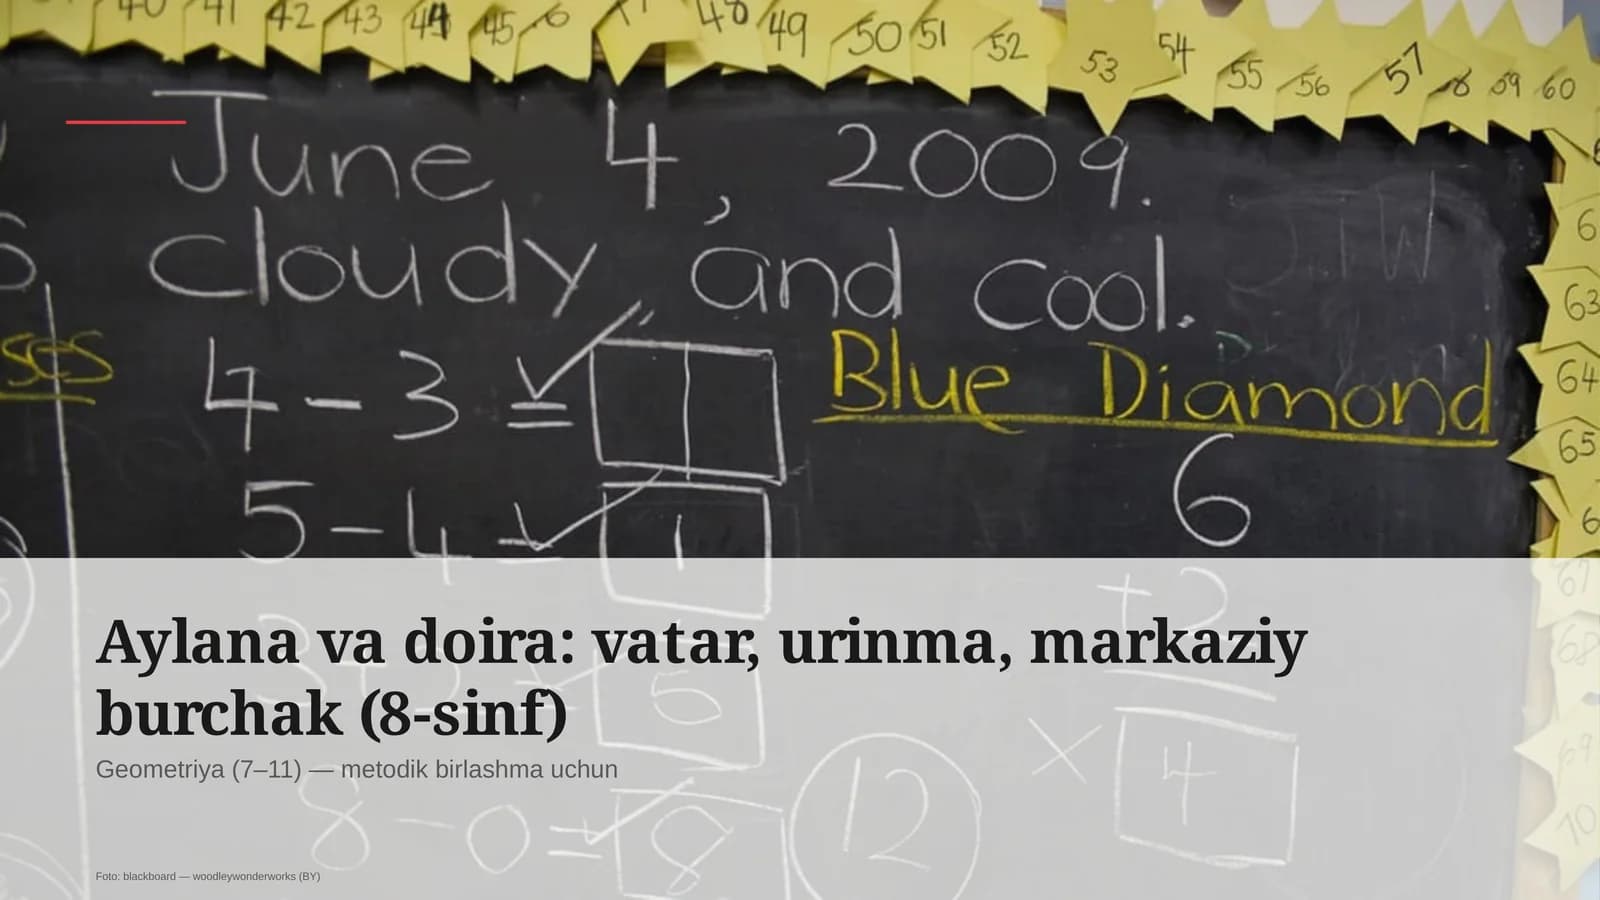 40 41 42 43 44 45 48 49 50 51 52 53 54 55 56 57 58 59 60
June 4, 2009.
cloudy and cool.
ses
4 - 3 =
Blue Diamond
5 - 4 = 1
6
+2
63
64
65
67
68
69
70
Aylana va doira: vatar, urinma, markaziy
burchak (8-sinf)
5
Geometriya (7–11) — metodik birlashma uchun
8 - 0 = 8
12
× 4
Foto: blackboard — woodleywonderworks (BY)